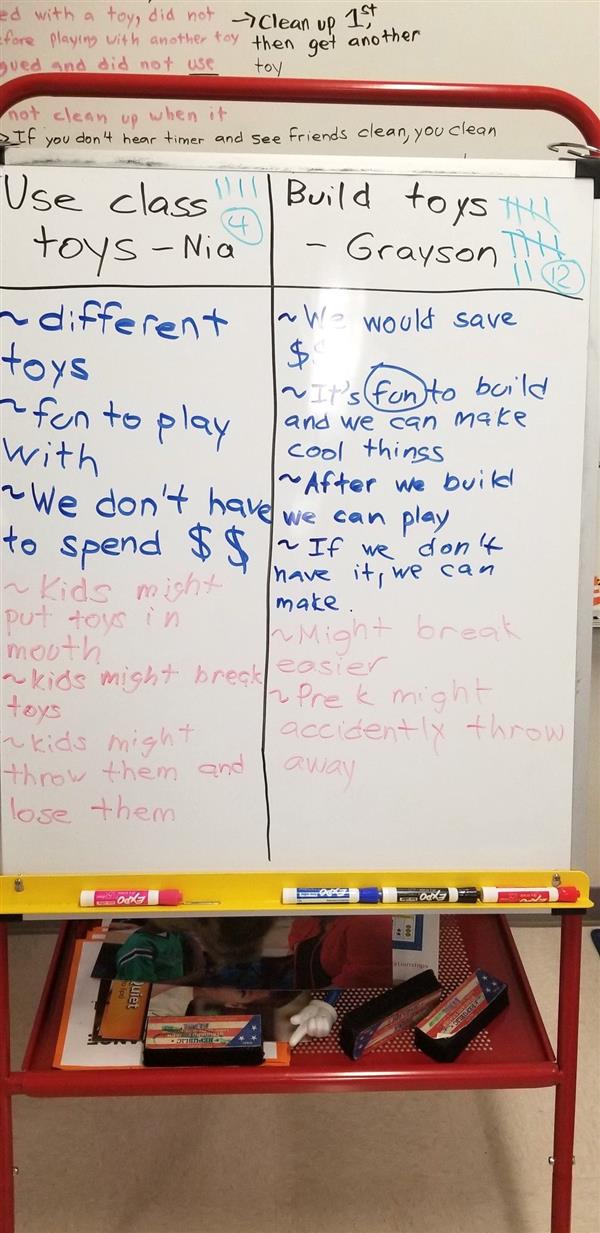 ed with a toy, did not
fore playing with another toy
gued and did not use
→ Clean up 1st,
then get another
toy
not clean up when it
> If you don't hear timer and see friends clean, you clean
Use class
toys - Nia
4
~ different
toys
~ fun to play
with
~ We don't have
to spend $$
~ Kids might
put toys in
mouth
~ kids might break
toys
~ kids might
throw them and
lose them
Build toys
- Grayson
12
~ We would save
$$
~ It's fun to build
and we can make
cool things
~ After we build
we can play
~ If we don't
have it, we can
make.
~ Might break
easier
~ Pre k might
accidently throw
away
EXPO
EXPO
EXPO
EXPO
Quiet
REPUBLIC